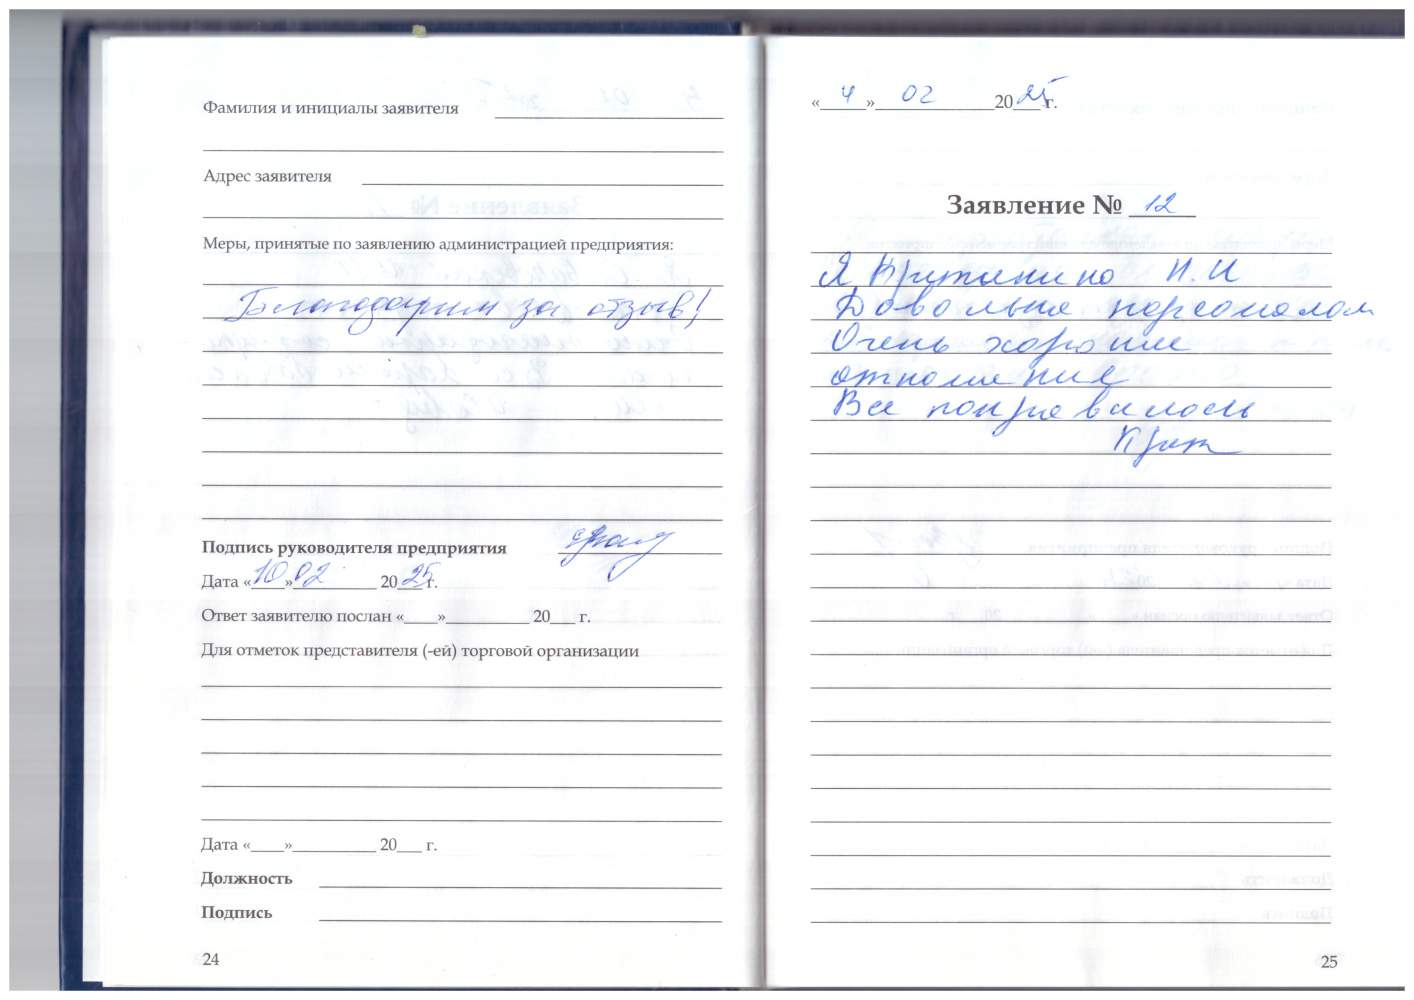 Фамилия и инициалы заявителя
Адрес заявителя
Меры, принятые по заявлению администрацией предприятия:
Благодарим за отзыв!
Подпись руководителя предприятия
Дата «10» 02 2025 г.
Ответ заявителю послан «____»__________ 20___ г.
Для отметок представителя (-ей) торговой организации
Дата «____»__________ 20___ г.
Должность
Подпись
24
«4» 02 2025 г.
Заявление № 12
Я Н.И
Довольна персоналом
Очень хорошие
отношения
Все понравилось
25